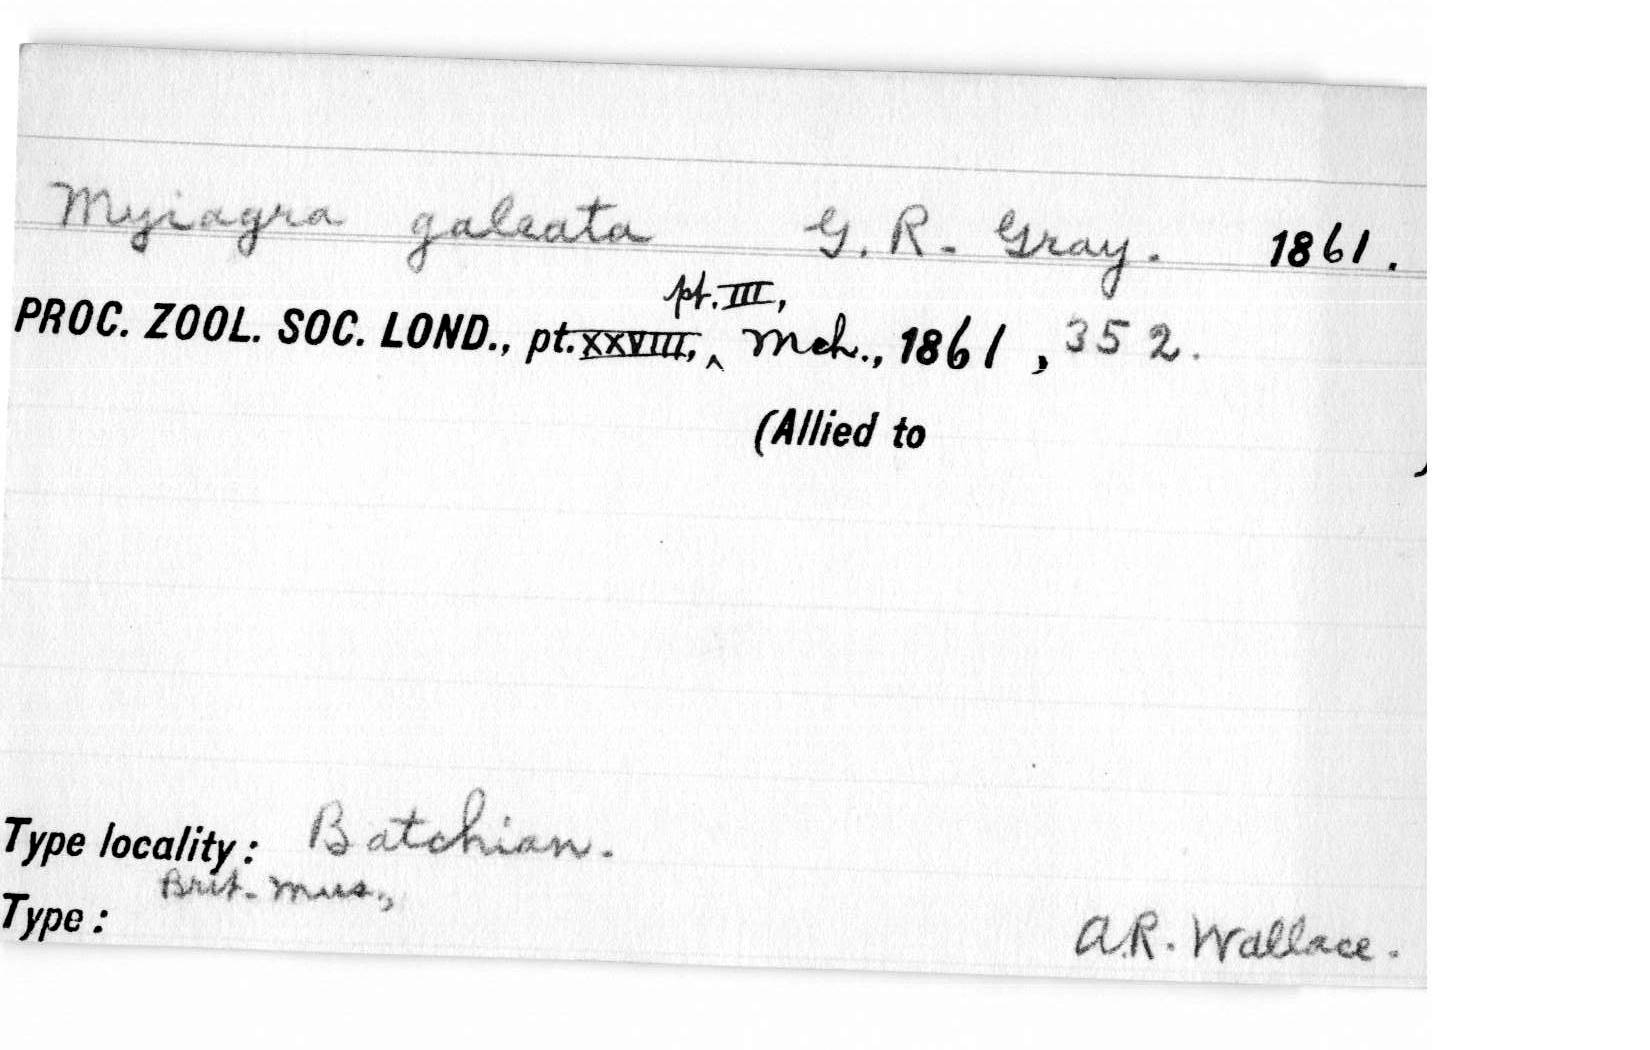 Myiagra galeata G. R. Gray. 1861.
pt. III,
PROC. ZOOL. SOC. LOND., pt. XXVIII, ^ Mch., 1861, 352.
(Allied to )
Type locality: Batchian.
Brit. Mus.,
Type: A.R. Wallace.